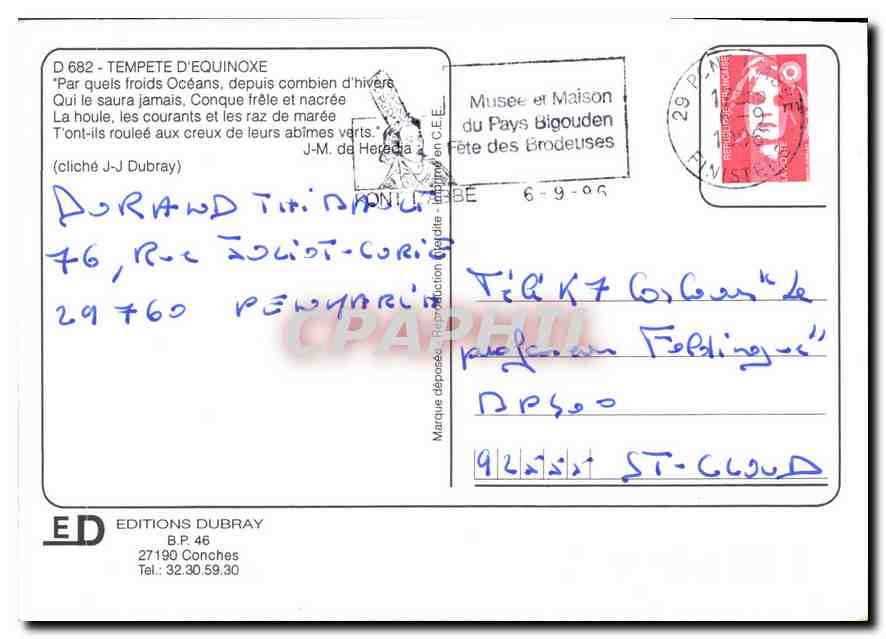 D 682 - TEMPETE D'EQUINOXE
"Par quels froids Océans, depuis combien d'hivers
Qui le saura jamais, Conque frêle et nacrée
La houle, les courants et les raz de marée
T'ont-ils rouleé aux creux de leurs abîmes verts."
J-M. de Heredia
(cliché J-J Dubray)
DURAND THIBAULT
76, Rue JOLIOT-CURIE
29760 PENMARCH
Marque déposée - Reproduction interdite - Imprimé en C.E.E.
Musée et Maison
du Pays Bigouden
Fête des Brodeuses
PONT L'ABBE 6-9-96
29
FINISTERE
REPUBLIQUE FRANÇAISE
LA POSTE
Télé K7 "Le
professeur
BP 500
92555 ST-CLOUD
CPAPHIL
ED
EDITIONS DUBRAY
B.P. 46
27190 Conches
Tel.: 32.30.59.30